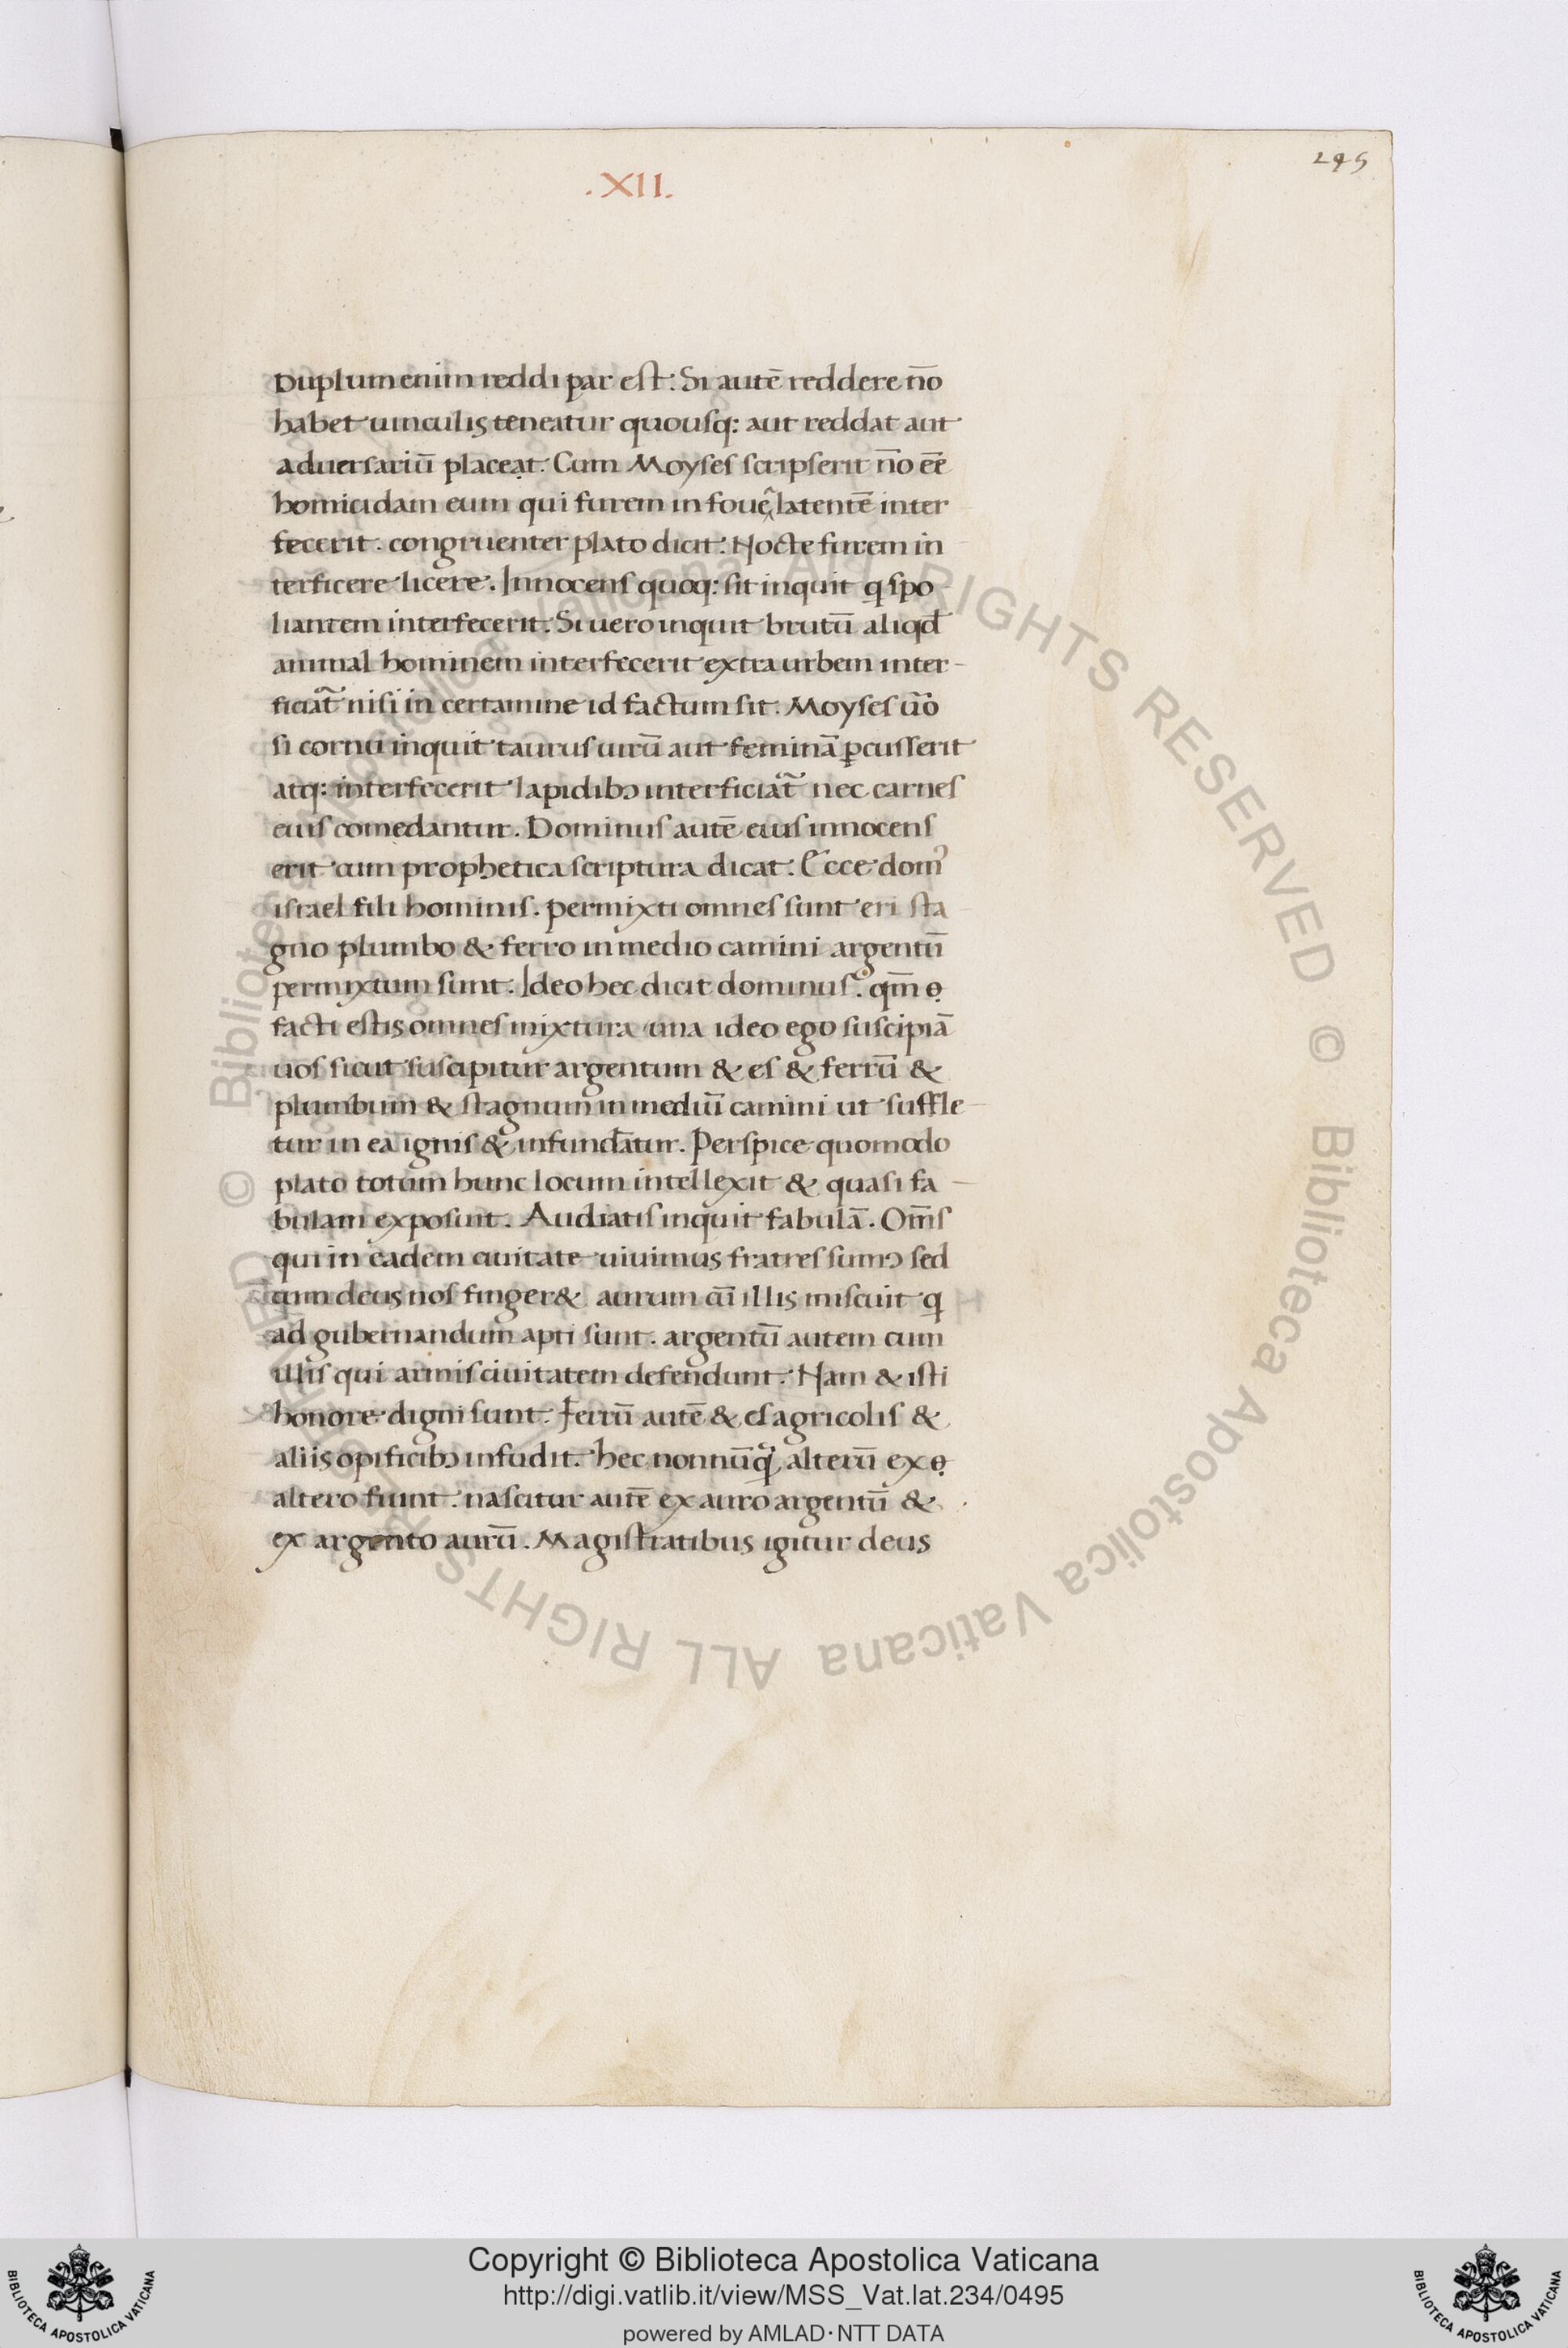 245
.XII.
Duplum enim reddi par est. Si autē reddere nō
habet uinculis teneatur quousq: aut reddat aut
aduersariū placeat. Cum Moyses scripserit nō eē
homicidam eum qui furem in fouę̄ latentē inter
fecerit. congruenter plato dicit. Nocte furem in
terficere licere. Innocens quoq: sit inquit q spo
liantem interfecerit. Si uero inquit brutū aliqd̄
animal hominem interfecerit extra urbem inter-
ficiat̃ nisi in certamine id factum sit. Moyses ūo
si cornu inquit taurus uirū aut feminā ꝑcusserit
atq: interfecerit lapidibɔ interficiat̃ nec carnes
eius comedantur. Dominus autē eius innocens
erit cum prophetica scriptura dicat. Ecce domꝰ
israel fili hominis. permixti omnes sunt eri sta
gno plumbo & ferro in medio camini argentū
permixtum sunt. Ideo hec dicit dominus. qm̄
facti estis omnes mixtura una ideo ego suscipiā
uos sicut suscipitur argentum & es & ferrū &
plumbum & stagnum in mediū camini ut suffle-
tur in eā ignis & infundātur. Perspice quomodo
plato totum hunc locum intellexit & quasi fa-
bulam exposuit. Audiatis inquit fabulā. Om̄s
qui in eadem ciuitate uiuimus fratres sumɔ sed
cum deus nos finger& aurum cū illis miscuit q
ad gubernandum apti sunt. argentū autem cum
illis qui armis ciuitatem defendunt. Nam & isti
honore digni sunt. Ferrū autē & es agricolis &
aliis opificibɔ infudit. hec nonnūq̄ alterū ex
altero fiunt. nascitur autē ex auro argentū &
ex argento aurū. Magistratibus igitur deus
© Biblioteca Apostolica Vaticana ALL RIGHTS RESERVED © Biblioteca Apostolica Vaticana ALL RIGHTS RESERVED
BIBLIOTECA APOSTOLICA VATICANA
Copyright © Biblioteca Apostolica Vaticana
http://digi.vatlib.it/view/MSS_Vat.lat.234/0495
powered by AMLAD·NTT DATA
BIBLIOTECA APOSTOLICA VATICANA